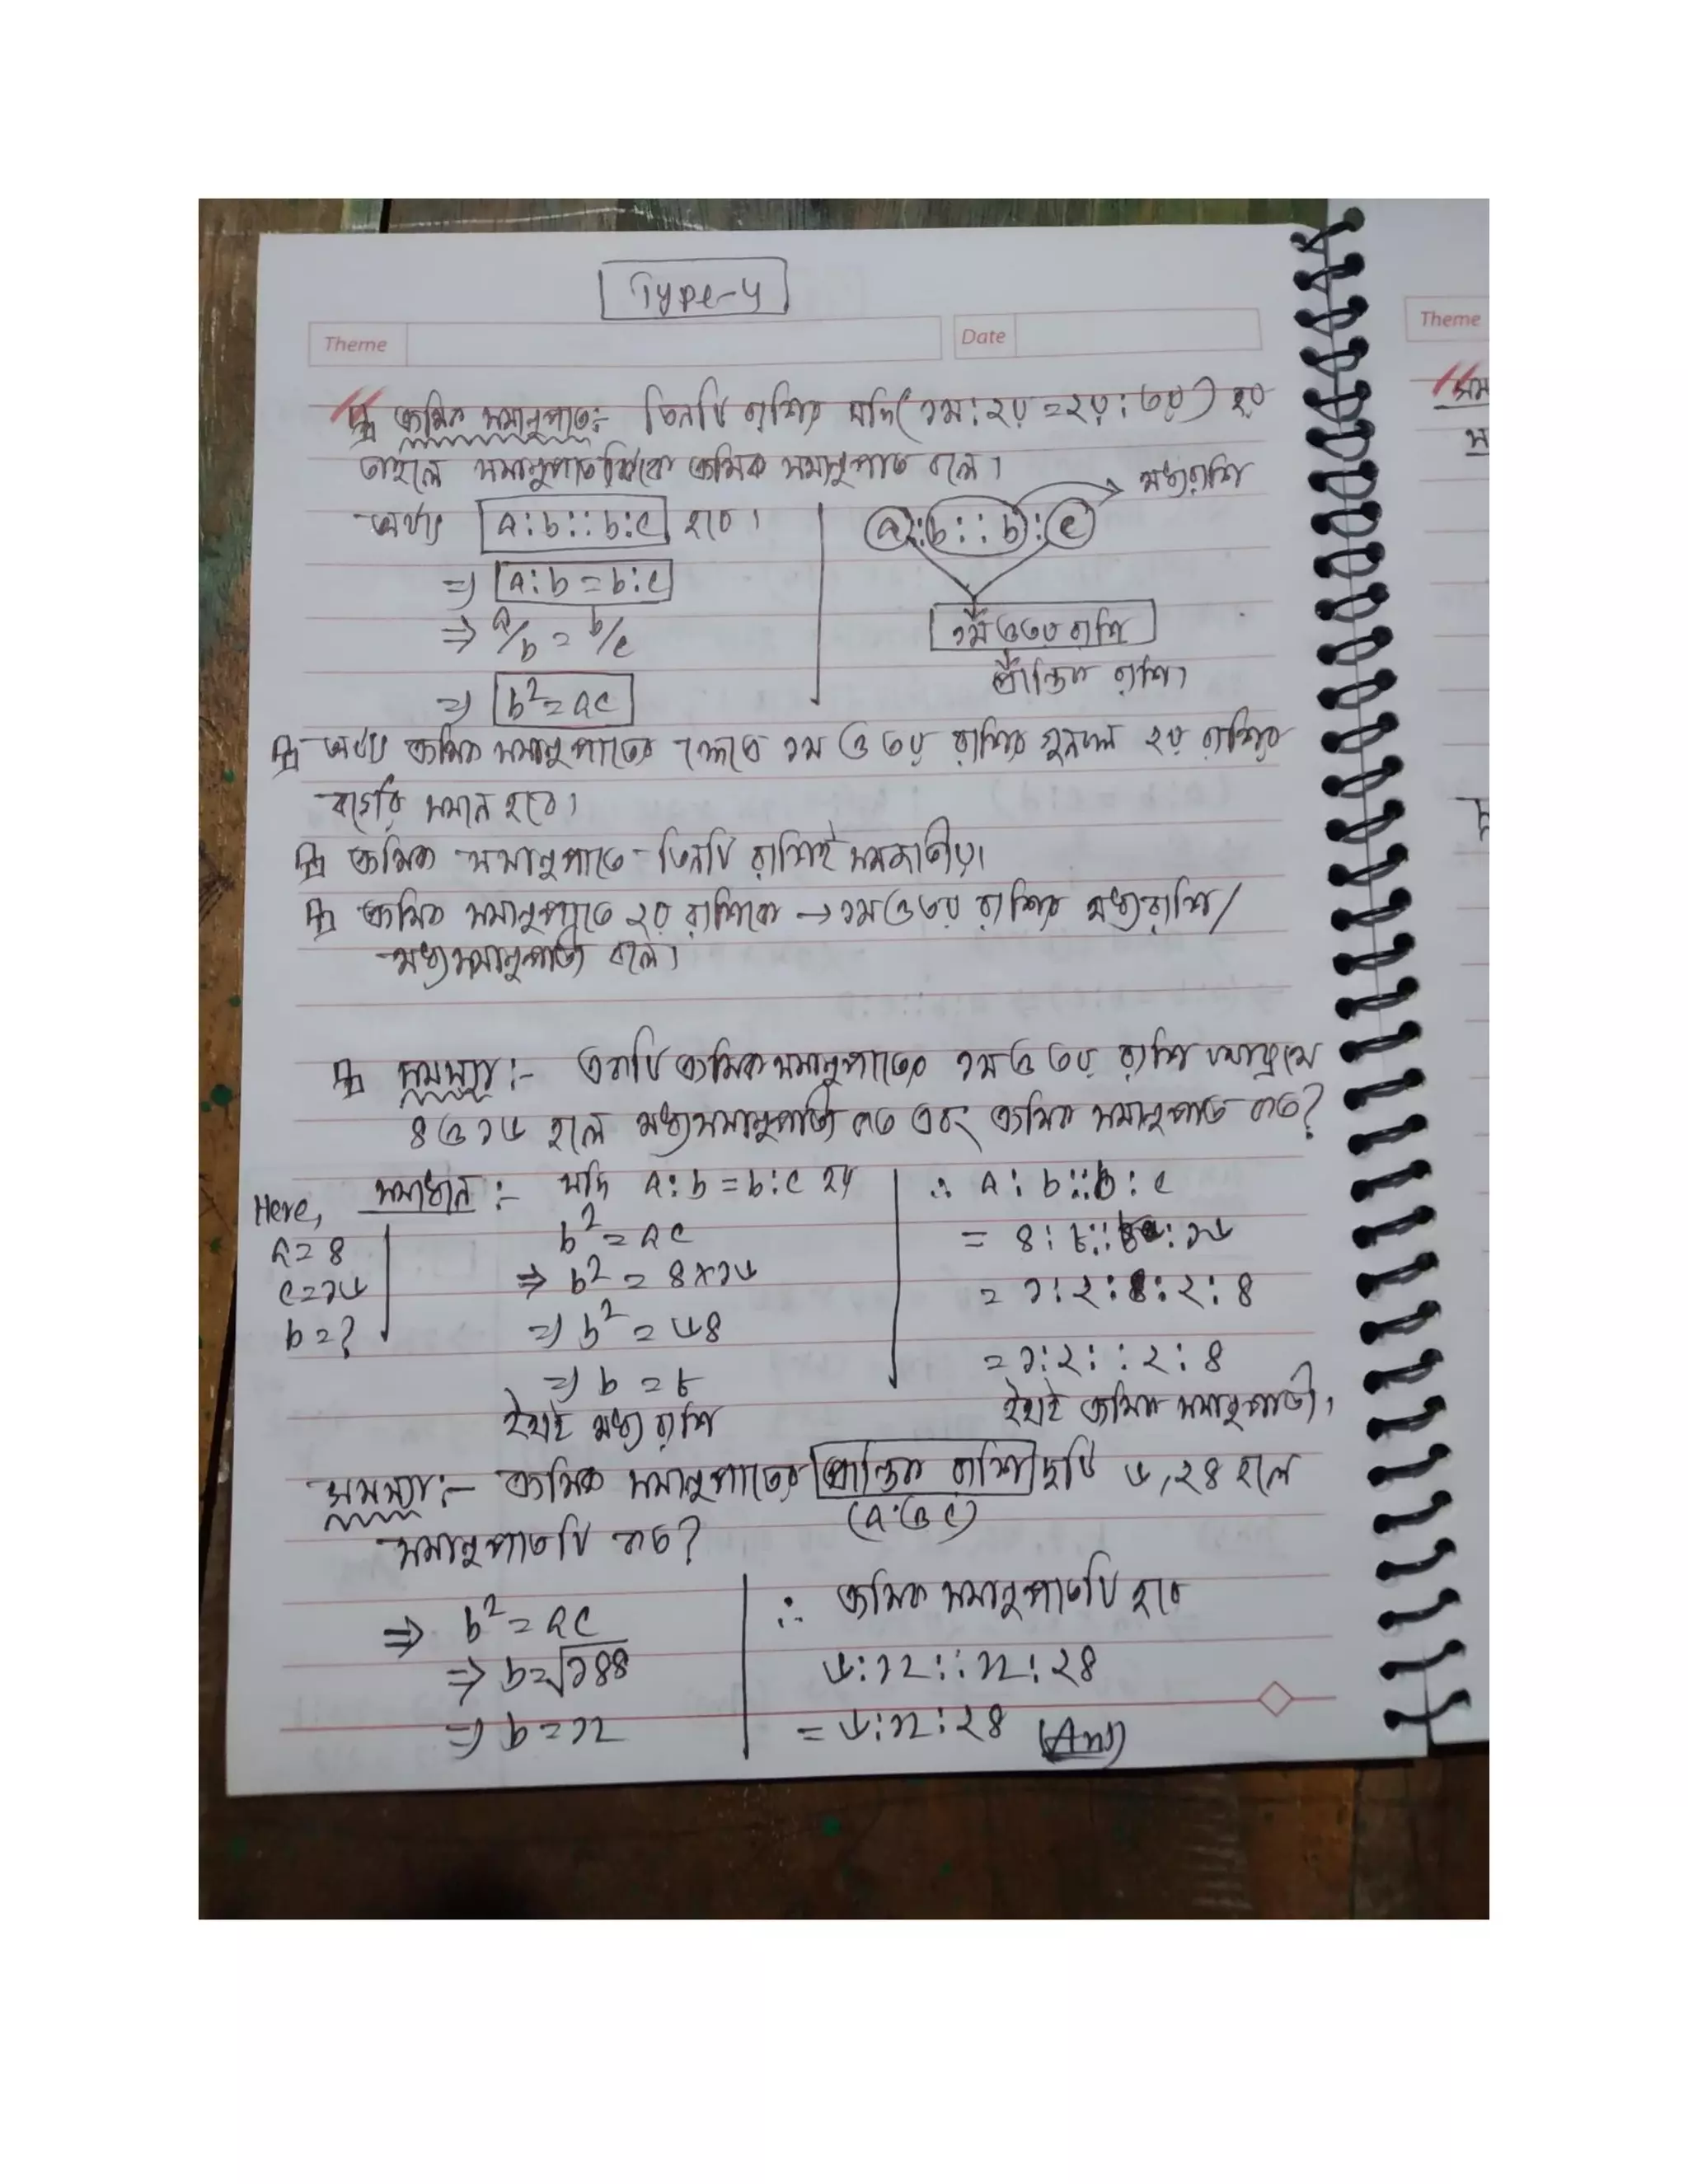 Type-4
Theme
Date
Theme
ক্রমিক সমানুপাত:- তিনটি রাশির যদি (১ম : ২য় = ২য় : ৩য়) হয়
তাহলে সমানুপাতটিকে ক্রমিক সমানুপাত বলে।
অর্থাৎ a:b::b:c হবে।
⇒ a:b = b:c
⇒ a/b = b/c
⇒ b² = ac
a:b::b:c → মধ্যরাশি
১ম ও ৩য় রাশি
প্রান্তিক রাশি।
অর্থাৎ ক্রমিক সমানুপাতের ক্ষেত্রে ১ম ও ৩য় রাশির গুনফল ২য় রাশির
বর্গের সমান হবে।
ক্রমিক সমানুপাতে তিনটি রাশিই সমজাতীয়।
ক্রমিক সমানুপাতে ২য় রাশিকে → ১ম ও ৩য় রাশির মধ্যরাশি/
মধ্যসমানুপাতী বলে।
সমস্যা:- একটি ক্রমিক সমানুপাতের ১ম ও ৩য় রাশি যথাক্রমে
৪ ও ১৬ হলে মধ্যসমানুপাতী কত এবং ক্রমিক সমানুপাত কত?
Here,
a = ৪
c = ১৬
b = ?
সমাধান:- যদি a:b = b:c হয়
b² = ac
⇒ b² = ৪×১৬
⇒ b² = ৬৪
⇒ b = ৮
ইহাই মধ্য রাশি
∴ a : b :: b : c
= ৪ : ৮ :: ৮ : ১৬
= ১ : ২ :: ২ : ৪
= ১ : ২ : : ২ : ৪
ইহাই ক্রমিক সমানুপাতী।
সমস্যা:- ক্রমিক সমানুপাতের প্রান্তিক রাশি দুটি ৬, ২৪ হলে
(a ও c)
সমানুপাতটি কত?
⇒ b² = ac
⇒ b = √১৪৪
⇒ b = ১২
∴ ক্রমিক সমানুপাতটি হবে
৬:১২::১২:২৪
= ৬:১২:২৪ (Ans)